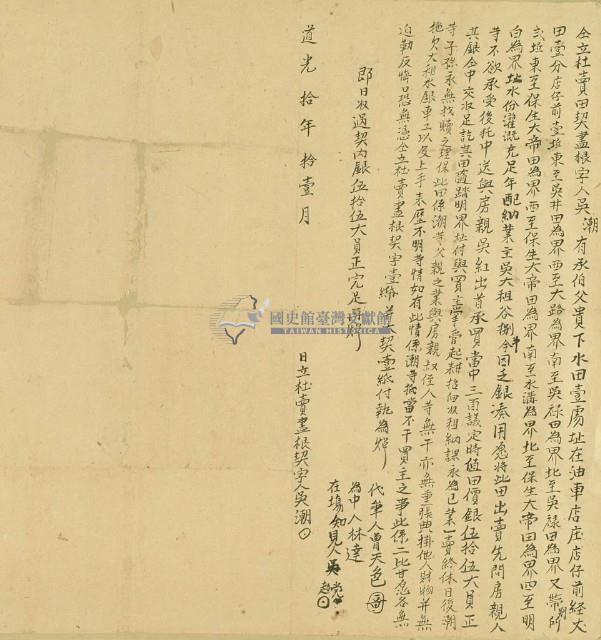 仝立杜賣田契盡根字人吳潮有承伯父買下水田壹處址在油車店庄店仔前經丈
田壹分店仔前壹坵東至吳井田為界西至大路為界南至吳祿田為界北至吳祿田為界又帶
弍坵東至保生大帝田為界西至保生大帝田為界南至水溝為界北至保生大帝田為界四至明
白為界址水份灌溉充足年配納業主吳大租谷捌斗今因乏銀湊用愿將此田出賣先問房親人
等不欲承受後托中送與房親吳紅出首承買當中三面議定時值田價銀伍拾伍大員正
其銀仝中交收足訖其田隨踏明界址付與買主掌管起耕招佃收租納課永為己業一賣終休日後潮
等子孫永無找贖之理保此田係潮等父親之業與房親叔侄人等無干亦無重張典掛他人財物并無
拖欠大租水銀車工以及上手來歷不明等情如有此情係潮等抵當不干買主之事此係二比甘愿各無
迫勒反悔口恐無憑仝立杜賣盡根契字壹紙契壹紙付執為炤
即日收過契內銀伍拾伍大員正完足炤
代筆人曾天色
為中人林達
在場知見人吳
日立杜賣盡根契字人吳潮
道光拾年拾壹月
國史館臺灣文獻館
TAIWAN HISTORICA